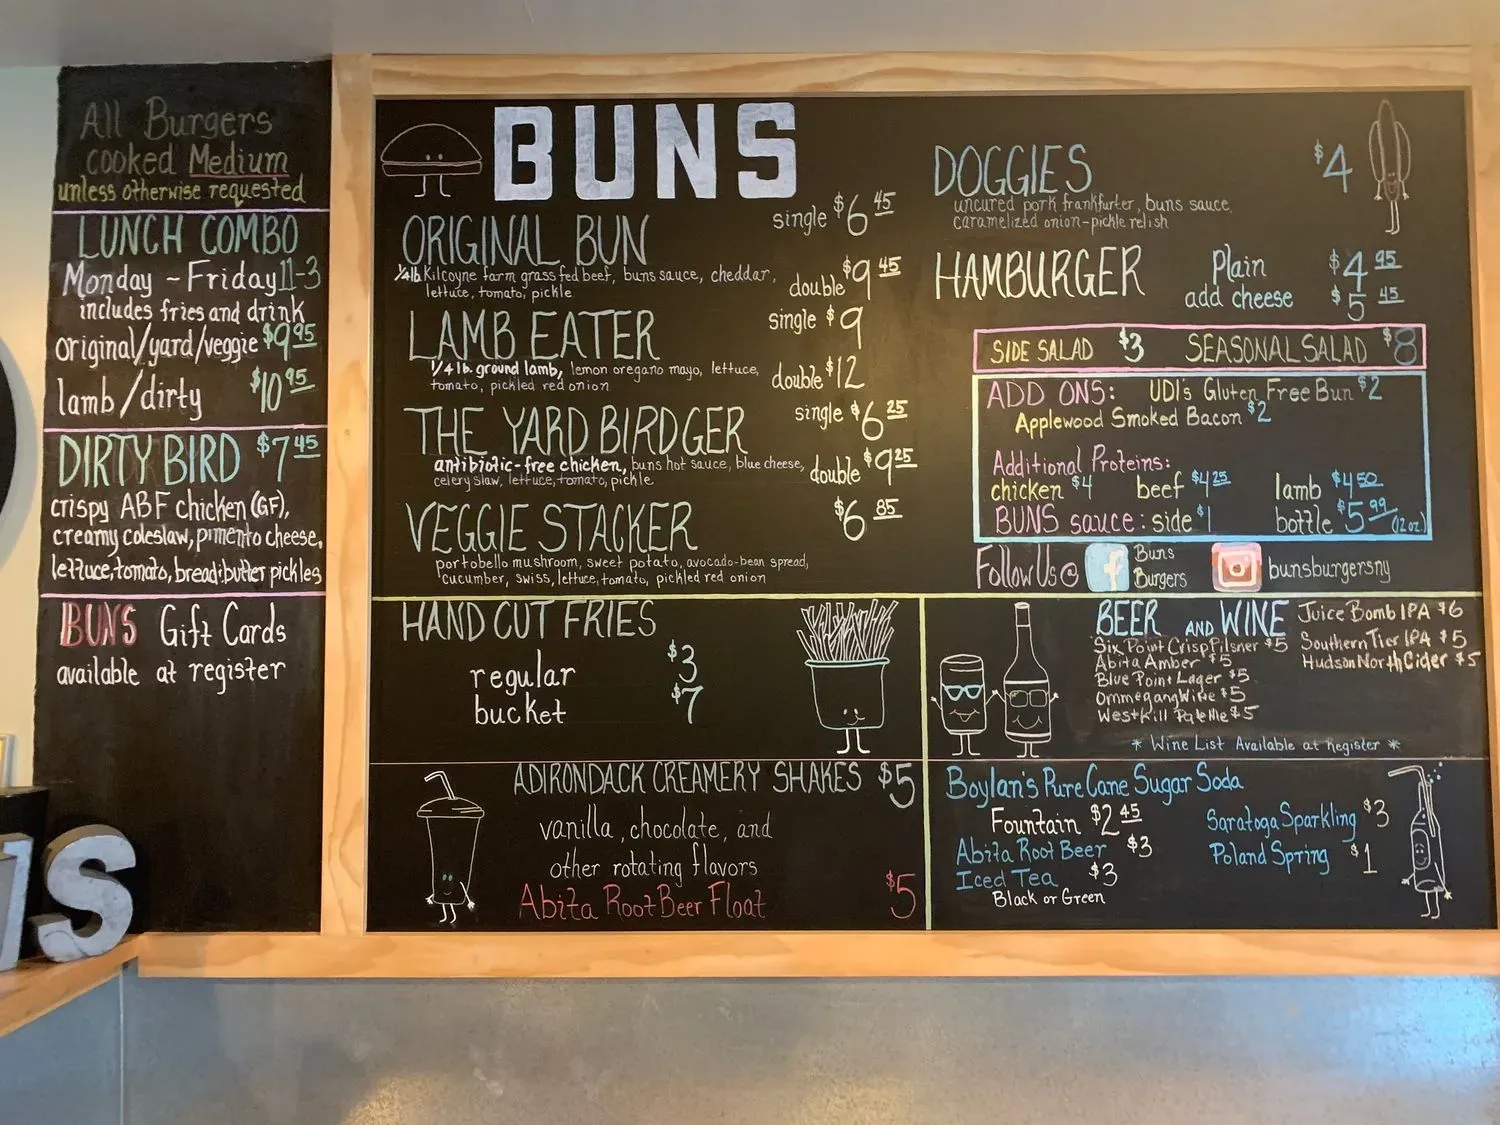 All Burgers
cooked Medium
unless otherwise requested
LUNCH COMBO
Monday - Friday 11-3
includes fries and drink
original/yard/veggie $9.95
lamb/dirty $10.95
DIRTY BIRD $7.45
crispy ABF chicken (GF),
creamy coleslaw, pimento cheese,
lettuce, tomato, bread & butter pickles
BUNS Gift Cards
available at register
BUNS
ORIGINAL BUN single $6.45
1/4 lb. Kilcoyne farm grass fed beef, buns sauce, cheddar,
lettuce, tomato, pickle
double $9.45
LAMB EATER single $9
1/4 lb. ground lamb, lemon oregano mayo, lettuce,
tomato, pickled red onion
double $12
THE YARD BIRDGER single $6.25
antibiotic-free chicken, buns hot sauce, blue cheese,
celery slaw, lettuce, tomato, pickle
double $9.25
VEGGIE STACKER $6.85
portobello mushroom, sweet potato, avocado-bean spread,
cucumber, swiss, lettuce, tomato, pickled red onion
DOGGIES $4
uncured pork frankfurter, buns sauce,
caramelized onion-pickle relish
HAMBURGER Plain $4.95
add cheese $5.45
SIDE SALAD $3 SEASONAL SALAD $8
ADD ONS: UDI's Gluten Free Bun $2
Applewood Smoked Bacon $2
Additional Proteins:
chicken $4 beef $4.25 lamb $4.50
BUNS sauce: side $1 bottle $5.99 (12 oz.)
Follow Us @ f Buns
Burgers
bunsburgersny
HAND CUT FRIES
regular $3
bucket $7
BEER AND WINE
Six Point Crisp Pilsner $5
Abita Amber $5
Blue Point Lager $5
Ommegang Witte $5
West Kill $5
Juice Bomb IPA $6
Southern Tier IPA $5
Hudson North Cider $5
* Wine List Available at Register *
ADIRONDACK CREAMERY SHAKES $5
vanilla, chocolate, and
other rotating flavors
Abita Root Beer Float $5
Boylan's Pure Cane Sugar Soda
Fountain $2.45
Abita Root Beer $3
Iced Tea $3
Black or Green
Saratoga Sparkling $3
Poland Spring $1
S